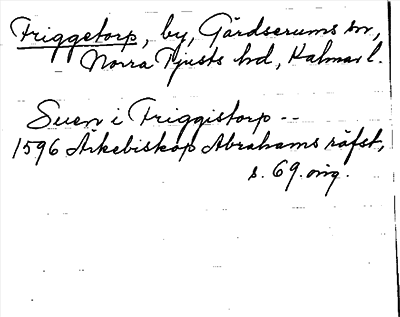 Friggetorp, by, Gärdserums sn,
Norra Tjusts hd, Kalmar l.
Suen i Friggistorp --
1596 Ärkebiskop Abrahams räfst,
s. 69. orig.